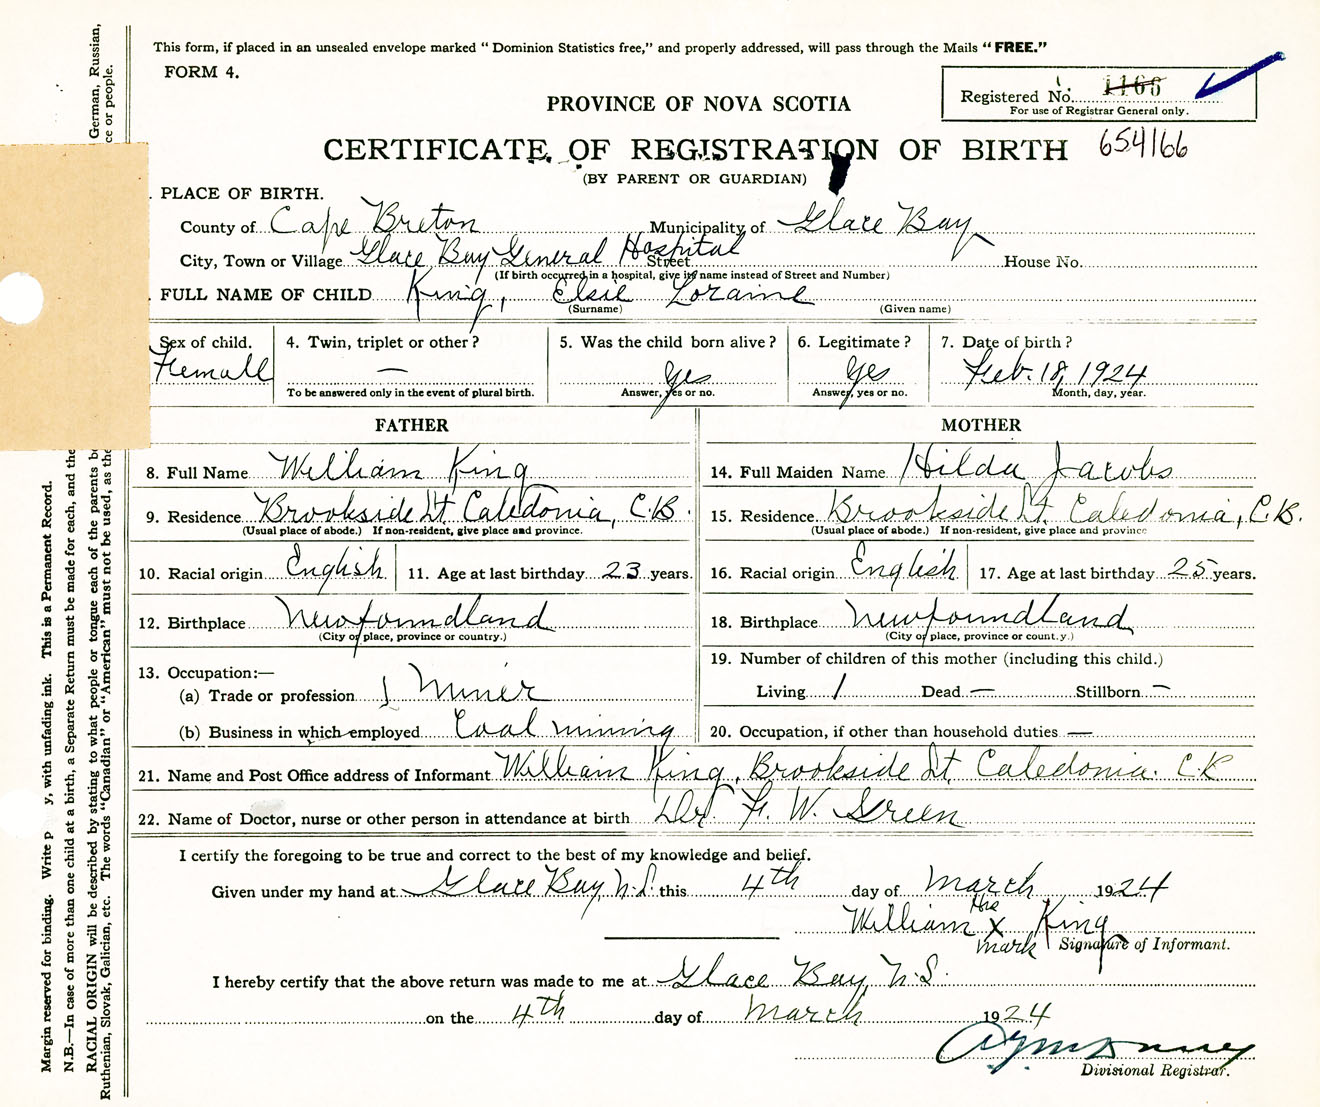 This form, if placed in an unsealed envelope marked "Dominion Statistics free," and properly addressed, will pass through the Mails "FREE."
FORM 4.
Registered No. 1166
For use of Registrar General only.
PROVINCE OF NOVA SCOTIA
CERTIFICATE OF REGISTRATION OF BIRTH 654166
(BY PARENT OR GUARDIAN)
. PLACE OF BIRTH.
County of Cape Breton Municipality of Glace Bay
City, Town or Village Glace Bay General Hospital Street House No.
(If birth occurred in a hospital, give its name instead of Street and Number)
. FULL NAME OF CHILD King, Elsie Loraine
(Surname) (Given name)
Sex of child. 4. Twin, triplet or other? 5. Was the child born alive? 6. Legitimate? 7. Date of birth?
Femall — Yes Yes Feb. 18, 1924
To be answered only in the event of plural birth. Answer, yes or no. Answer, yes or no. Month, day, year.
FATHER MOTHER
8. Full Name William King 14. Full Maiden Name Hilda Jacobs
9. Residence Brookside St. Caledonia, C.B. 15. Residence Brookside St. Caledonia, C.B.
(Usual place of abode.) If non-resident, give place and province. (Usual place of abode.) If non-resident, give place and province
10. Racial origin English 11. Age at last birthday 23 years. 16. Racial origin English 17. Age at last birthday 25 years.
12. Birthplace Newfoundland 18. Birthplace Newfoundland
(City or place, province or country.) (City or place, province or count.y.)
13. Occupation:— 19. Number of children of this mother (including this child.)
(a) Trade or profession Miner Living 1 Dead — Stillborn —
(b) Business in which employed Coal mining 20. Occupation, if other than household duties —
21. Name and Post Office address of Informant William King, Brookside St. Caledonia. C.B
22. Name of Doctor, nurse or other person in attendance at birth Dr. F. W. Green
I certify the foregoing to be true and correct to the best of my knowledge and belief.
Given under my hand at Glace Bay, N.S. this 4th day of March 1924
William his x mark King
Signature of Informant.
I hereby certify that the above return was made to me at Glace Bay, N.S.
on the 4th day of March 1924
Divisional Registrar.
Margin reserved for binding. Write p y, with unfading ink. This is a Permanent Record.
N.B.—In case of more than one child at a birth, a Separate Return must be made for each, and the
RACIAL ORIGIN will be described by stating to what people or tongue each of the parents be German, Russian,
Ruthenian, Slovak, Galician, etc. The words "Canadian" or "American" must not be used, as the ce or people.